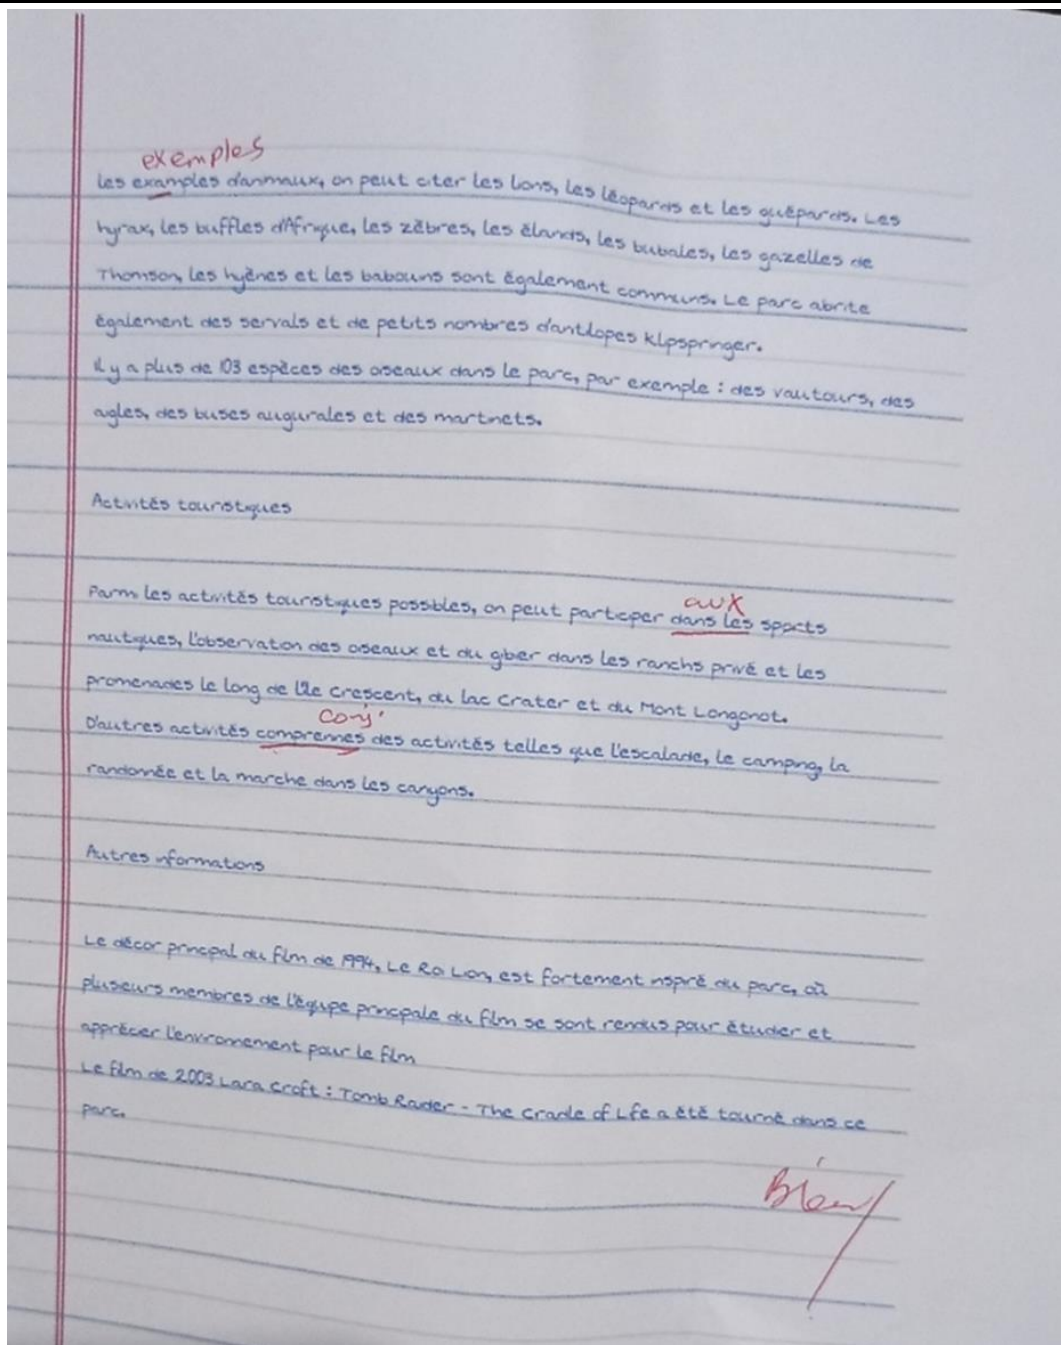 exemples
les examples d'animaux, on peut citer les lions, les léopards et les guépards. Les
hyrax, les buffles d'Afrique, les zèbres, les élands, les bubales, les gazelles de
Thomson, les hyènes et les babouins sont également communs. Le parc abrite
également des servals et de petits nombres d'antilopes klipspringer.
Il y a plus de 103 espèces des oiseaux dans le parc, par exemple : des vautours, des
aigles, des buses augurales et des martinets.
Activités touristiques
aux
Parmi les activités touristiques possibles, on peut participer dans les sports
nautiques, l'observation des oiseaux et du gibier dans les ranchs privé et les
promenades le long de l'île Crescent, du lac Crater et du Mont Longonot.
conj'
D'autres activités comprennes des activités telles que l'escalade, le camping, la
randonnée et la marche dans les canyons.
Autres informations
Le décor principal du film de 1994, Le Roi Lion, est fortement inspiré du parc, où
plusieurs membres de l'équipe principale du film se sont rendus pour étudier et
apprécier l'environnement pour le film
Le film de 2003 Lara Croft : Tomb Raider - The Cradle of Life a été tourné dans ce
parc.
Bien